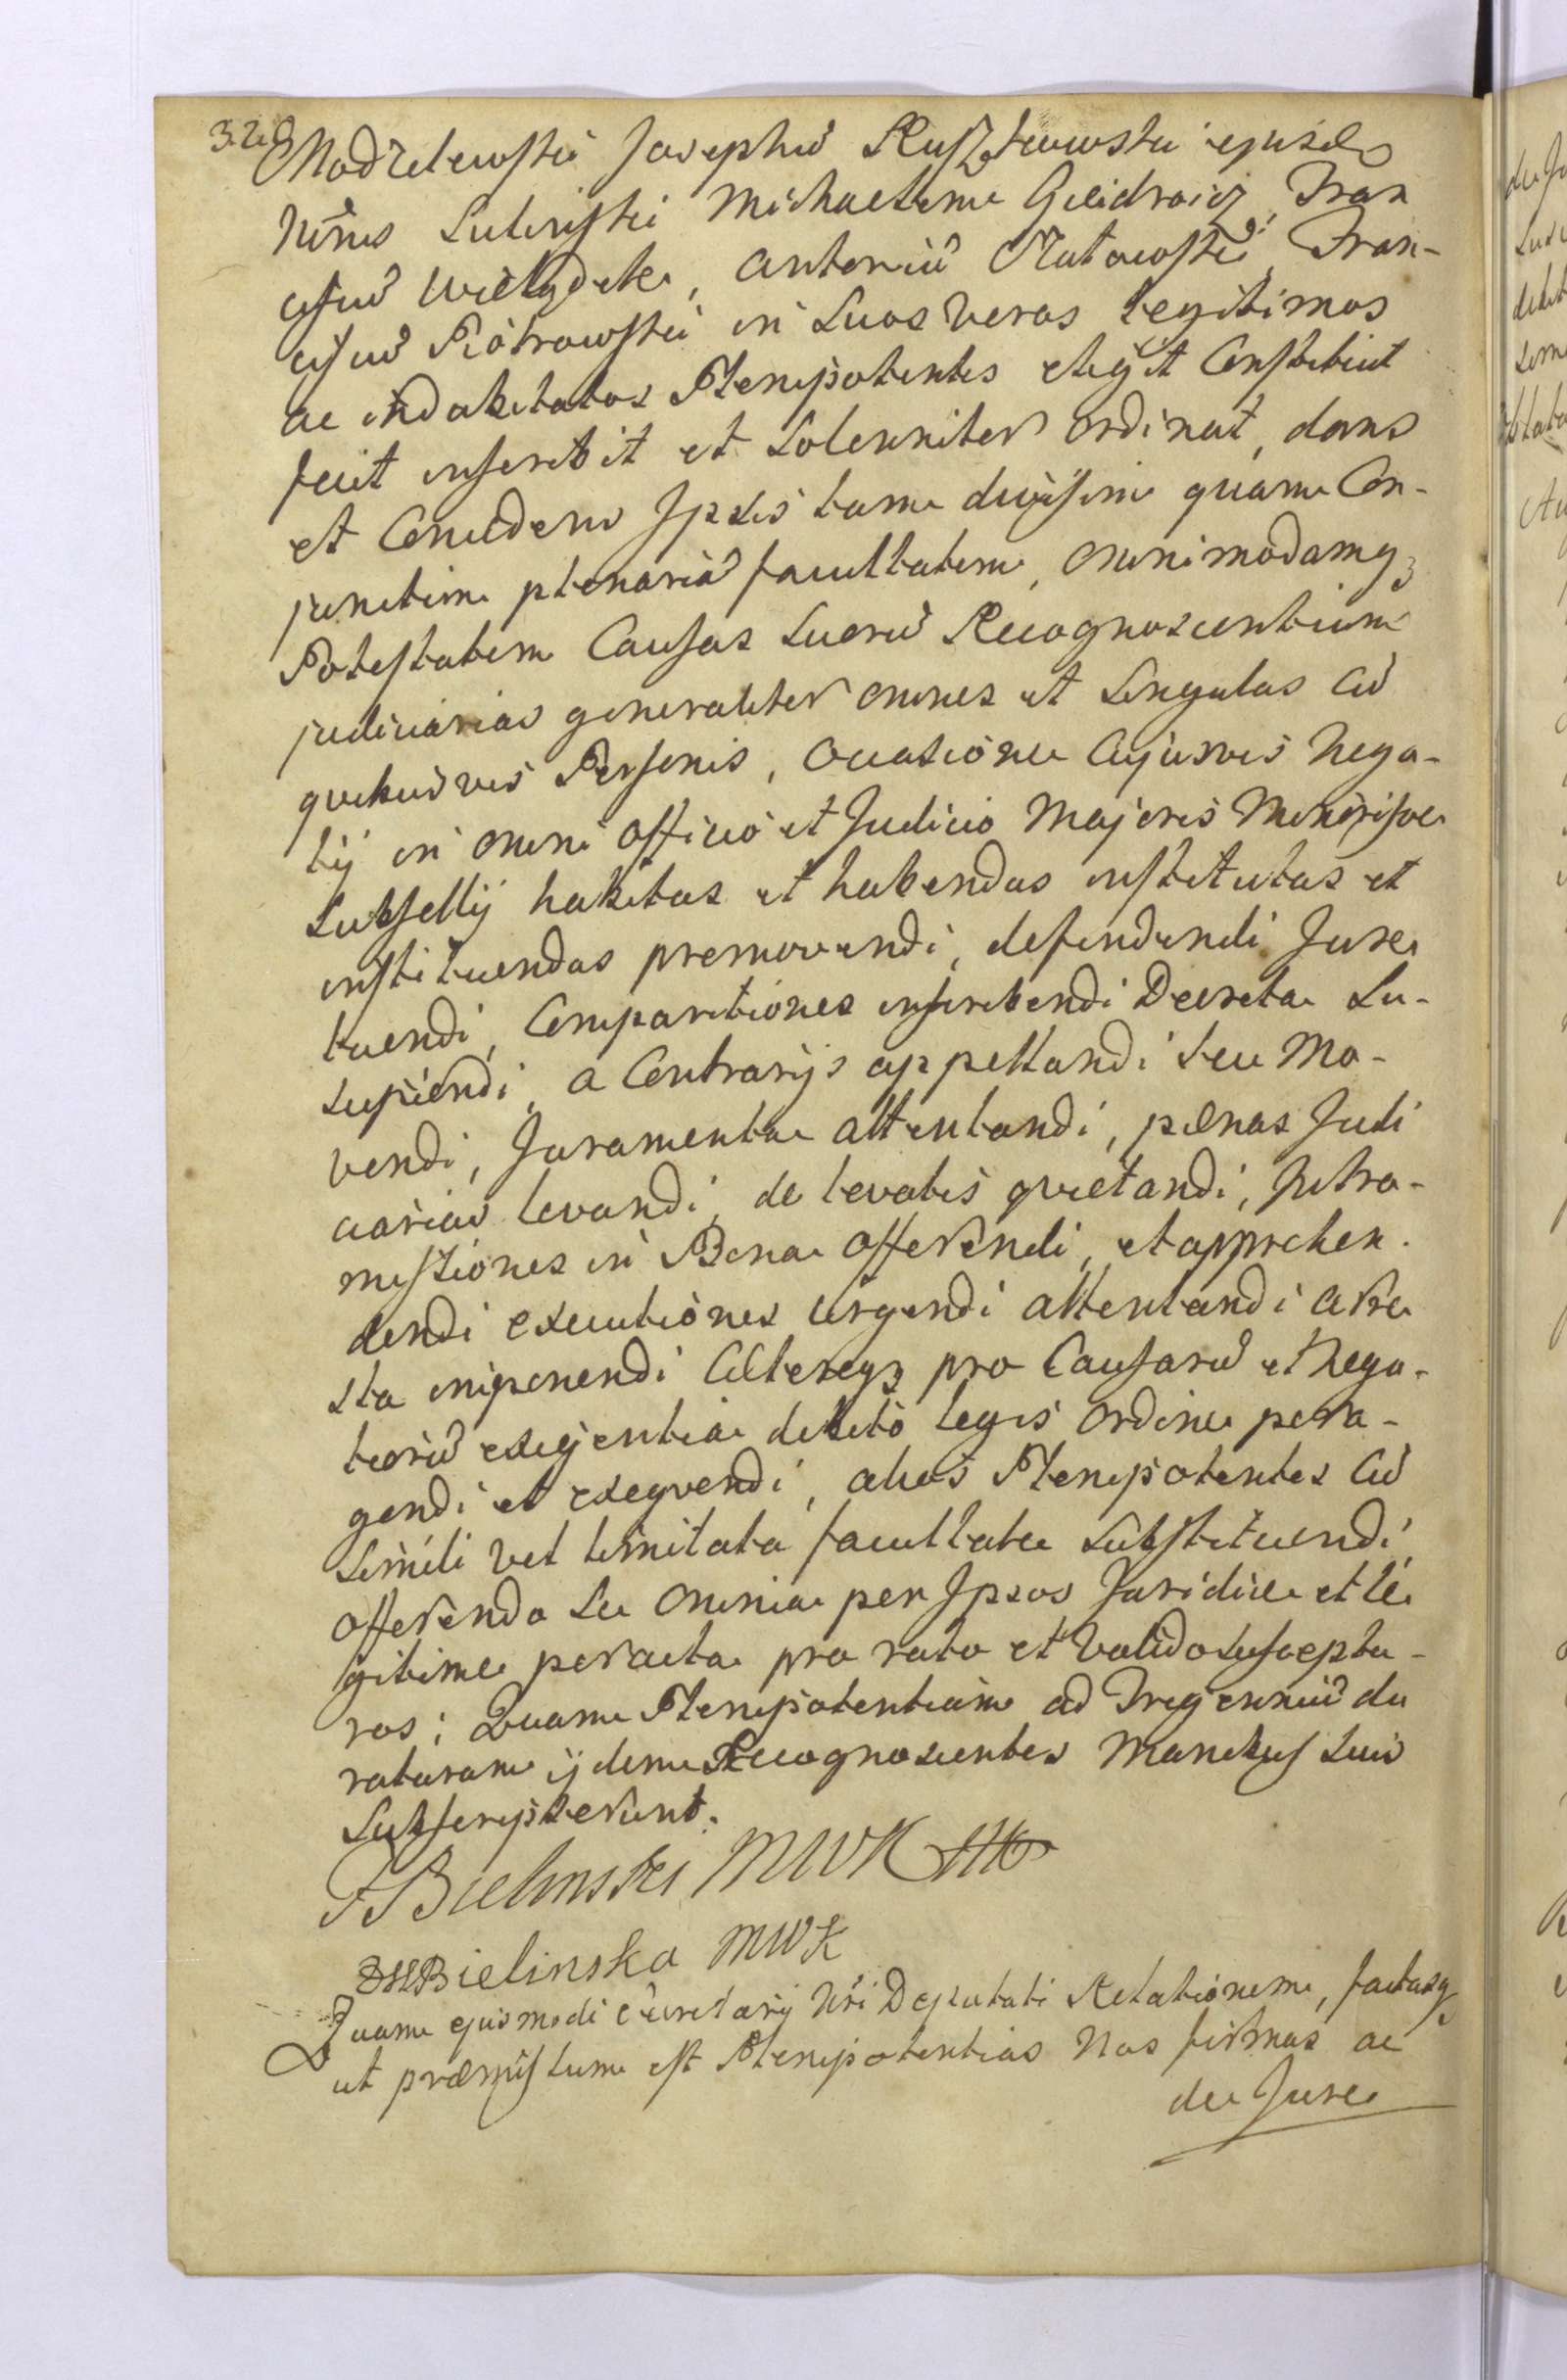 320
Modzelewski Josephũ Rusztkowski ejusd
Nñis Suleriski Michaelem Gieidroicj, Fran
cisũ Wielgdek, Antoniũ Natowski, Fran-
cisũ Piotrowski in Suos veros legitimos
ac indubitatos Plenipotentes elegit Constituit
fecit inscribit et Solenniter ordinat, dans
et Concedens Ipsis tam divisim quam Con-
junctim plenariã facultatem, omnimodamq3
Potestatem Causas Suorũ Recognoscentium
judiciarias generaliter omnes et Singulas Cũ
quibusvis Personis, occasione Cujusvis Nego-
tij in omni officio et Judicio Majoris Minorisve
Subsellij habitas et habendas institutas et
instituendas promovendi, defendendi Jure
tuendi, Comparitiones inscribendi Decreta Su-
scipiendi, a Contrarijs appellandi seu Mo-
vendi, Juramenta attentandi, pœnas Judi
ciarias levandi, de levatis quietandi, Intro-
missiones in Bona offerendi, et apprehen-
dendi executiones urgendi attentandi arre
sta imponendi Cæteraq3 pro Causarũ et Nego-
tiorũ exigentia debito legis ordine pera-
gendi et exequendi, alios Plenipotentes Cũ
Simili vel limitata facultate Substituendi,
offerendo Se omnia per Ipsos Juridice et le
gitime peracta pro rato et valido Susceptu-
ros; Quam Plenipotentiam ad Tregenniũ du
raturam ijdem Recognoscentes Manibus Suis
Subscripserunt.
F Bielinski MWK
Bielinska MWK
Quam ejusmodi Secretarij Nři Deputati Relationem, factasq3
ut præmissum est Plenipotentias Nos firmas ac
de Jure